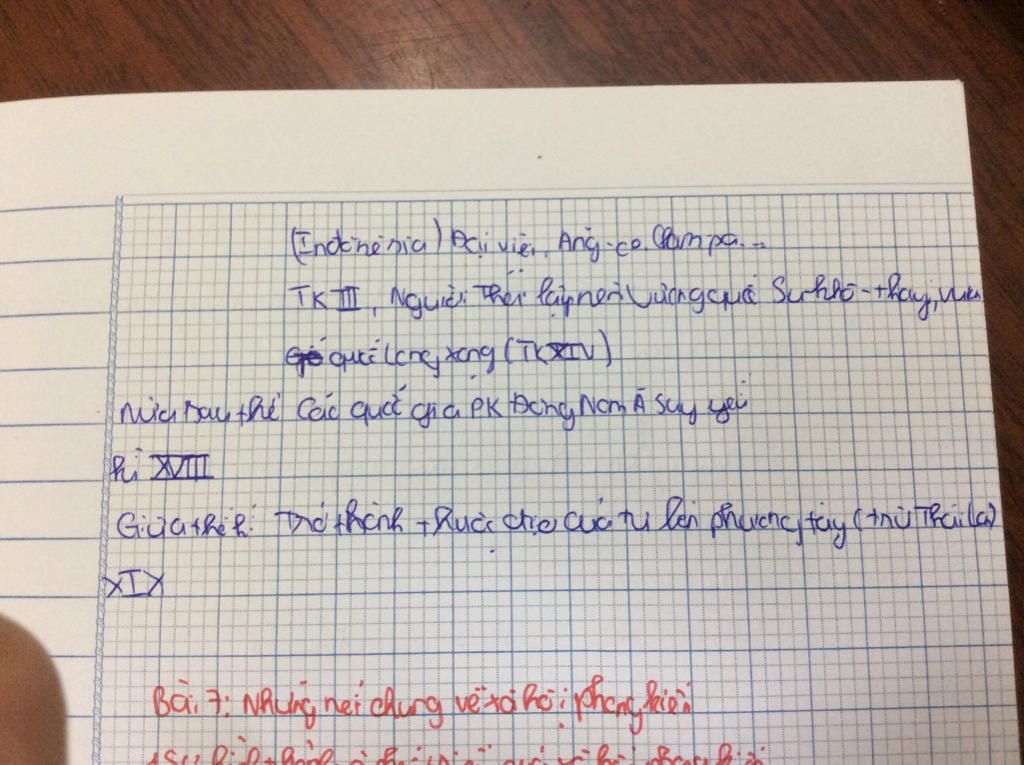 (Inđônêxia) Đại việt, Ăng-co Chămpa...
TK XIII, Người Thái lập nên Vương quốc Su-khô-thay, vươn
quốc Lạng xạng (TK XIV)
Nửa sau thế Các quốc gia PK Đông Nam Á suy yếu
kỉ XVIII
Giữa thế kỉ: Trở thành thuộc địa của tư bản phương tây (trừ Thái lan)
XIX
Bài 7: Những nét chung về xã hội phong kiến